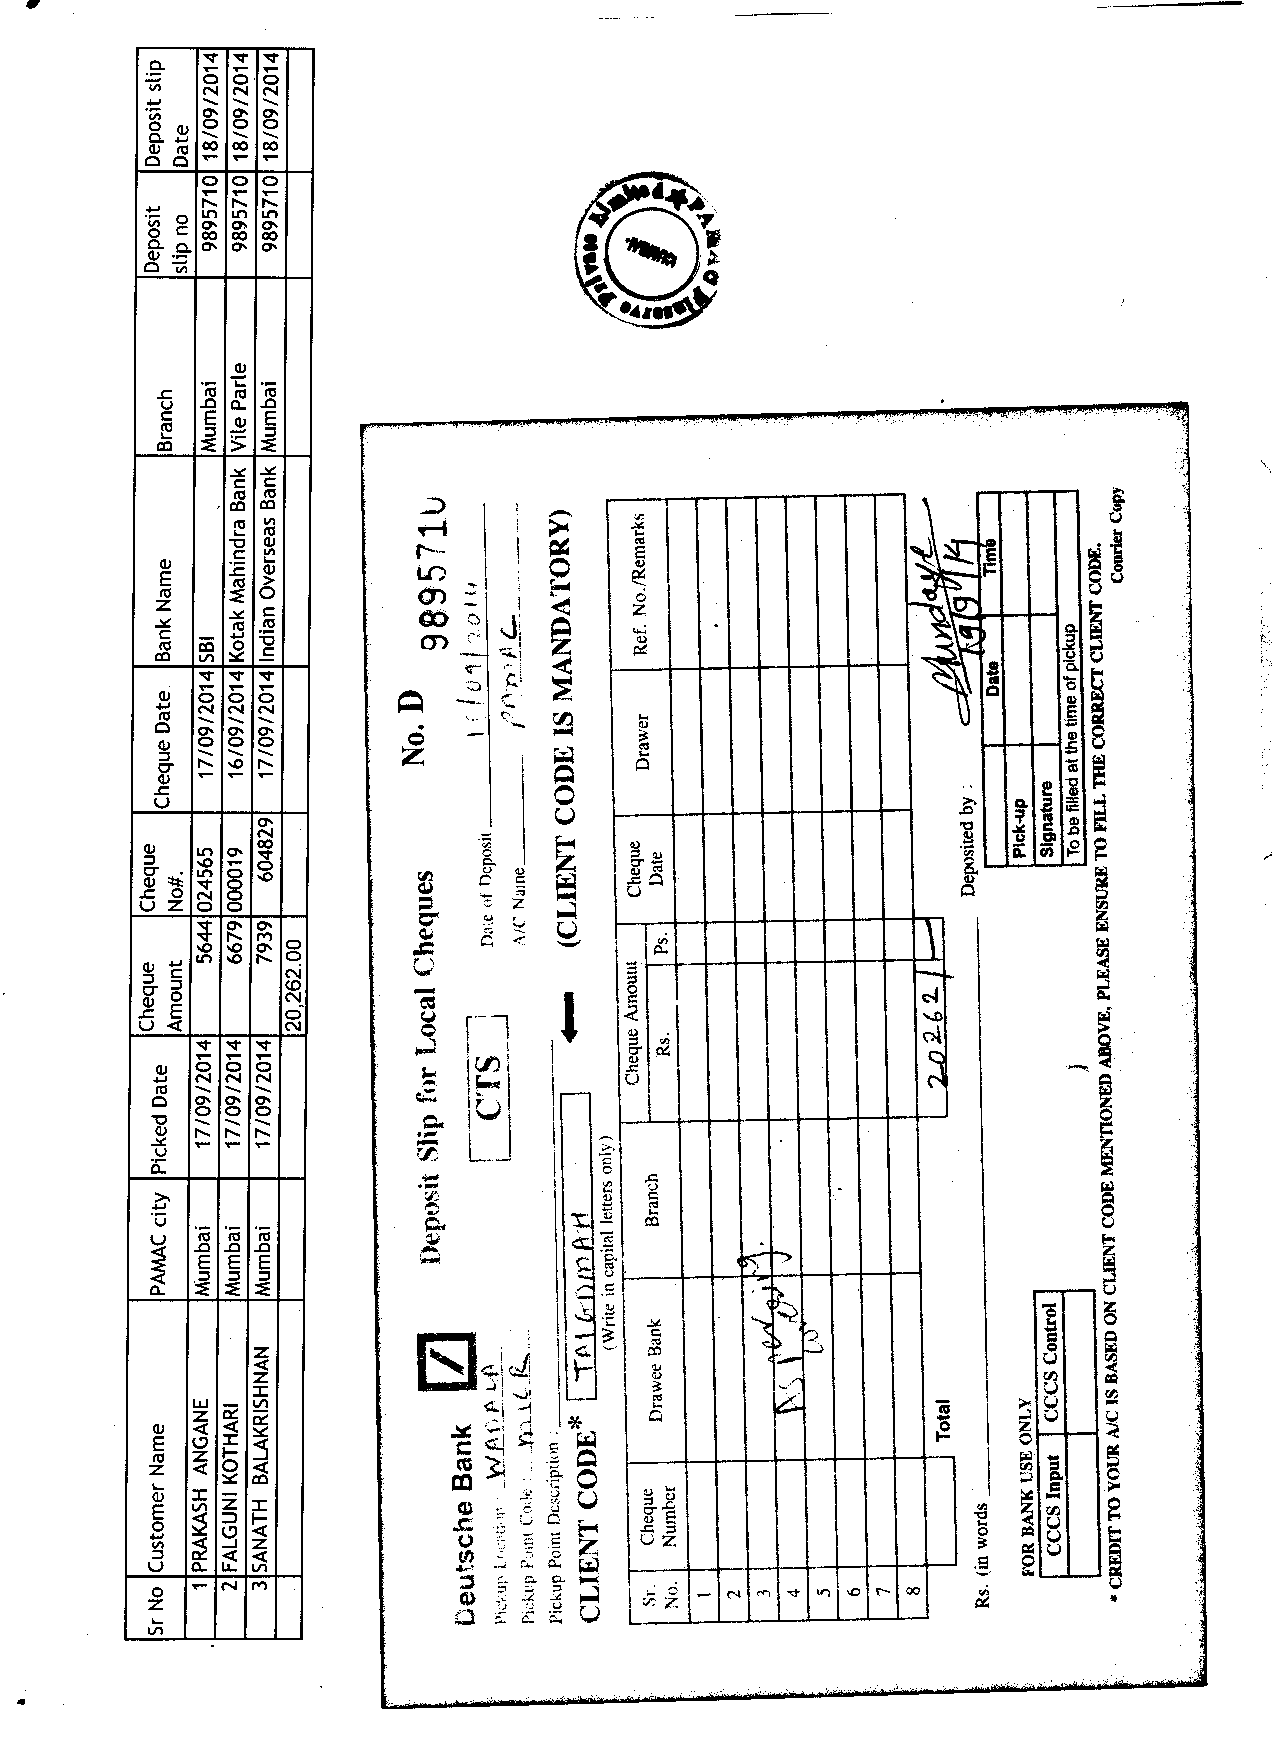 Sr No Customer Name PAMAC city Picked Date Cheque Amount Cheque No#. Cheque Date Bank Name Branch Deposit slip no Deposit slip Date
1 PRAKASH ANGANE Mumbai 17/09/2014 5644 024565 17/09/2014 SBI Mumbai 9895710 18/09/2014
2 FALGUNI KOTHARI Mumbai 17/09/2014 6679 000019 16/09/2014 Kotak Mahindra Bank Vile Parle 9895710 18/09/2014
3 SANATH BALAKRISHNAN Mumbai 17/09/2014 7939 604829 17/09/2014 Indian Overseas Bank Mumbai 9895710 18/09/2014
20,262.00
PAMAC Finserve Private Limited
MUMBAI
Deutsche Bank Deposit Slip for Local Cheques No. D 9895710
Pickup Location WADALA CTS Date of Deposit /09/2014
Pickup Point Code : MICR A/C Name PAMAC
Pickup Point Description :
CLIENT CODE* TAIGDMAH (CLIENT CODE IS MANDATORY)
(Write in capital letters only)
Sr. No. Cheque Number Drawee Bank Branch Cheque Amount Rs. Ps. Cheque Date Drawer Ref. No./Remarks
1
2
3
4
5
6
7
8
As per
Total 20262/-
Rs. (in words Deposited by :
19/9/14
Date Time
Pick-up
Signature
To be filled at the time of pickup
FOR BANK USE ONLY
CCCS Input CCCS Control
* CREDIT TO YOUR A/C IS BASED ON CLIENT CODE MENTIONED ABOVE, PLEASE ENSURE TO FILL THE CORRECT CLIENT CODE.
Courier Copy